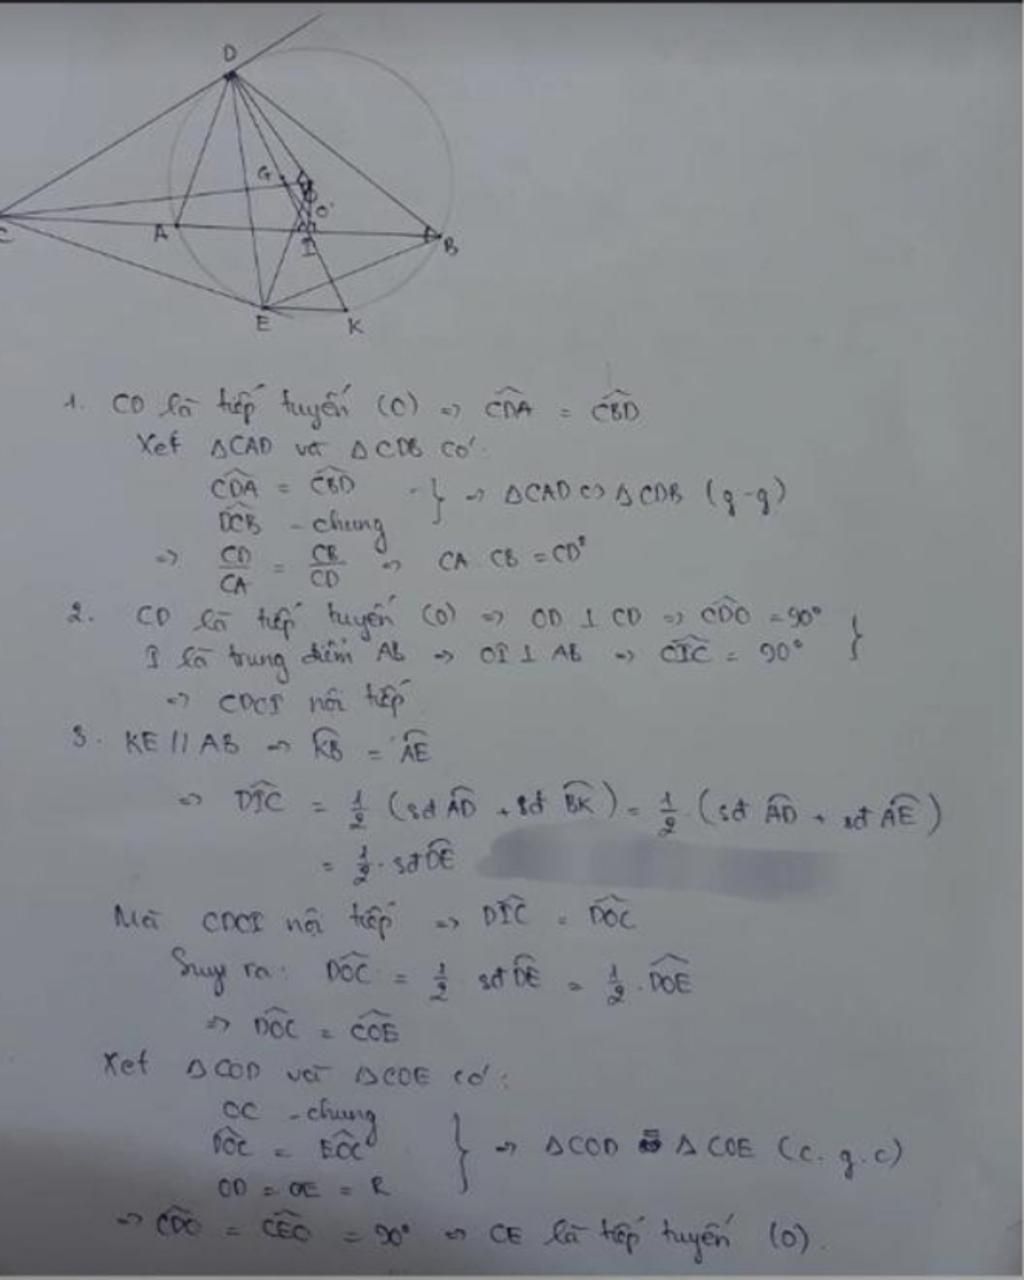 D
G
O
C
A
I
B
E
K
1. CD là tiếp tuyến (O) => \widehat{CDA} = \widehat{CBD}
Xét ΔCAD và ΔCDB có:
\widehat{CDA} = \widehat{CBD} } => ΔCAD ∽ ΔCDB (g-g)
\widehat{DCB} - chung
=> CD/CA = CB/CD => CA CB = CD²
2. CD là tiếp tuyến (O) => OD ⊥ CD => \widehat{CDO} = 90° }
I là trung điểm AB => OI ⊥ AB => \widehat{OIC} = 90°
=> CDOI nội tiếp
3. KE // AB => \widehat{KB} = \widehat{AE}
=> \widehat{DIC} = 1/2 (sđ \widehat{AD} + sđ \widehat{BK}) = 1/2 (sđ \widehat{AD} + sđ \widehat{AE})
= 1/2 . sđ \widehat{DE}
Mà CDOI nội tiếp => \widehat{DIC} = \widehat{DOC}
Suy ra: \widehat{DOC} = 1/2 sđ \widehat{DE} = 1/2 . \widehat{DOE}
=> \widehat{DOC} = \widehat{COE}
Xét ΔCOD và ΔCOE có:
OC - chung
\widehat{DOC} = \widehat{EOC} } => ΔCOD = ΔCOE (c.g.c)
OD = OE = R
=> \widehat{CDO} = \widehat{CEO} = 90° => CE là tiếp tuyến (O).